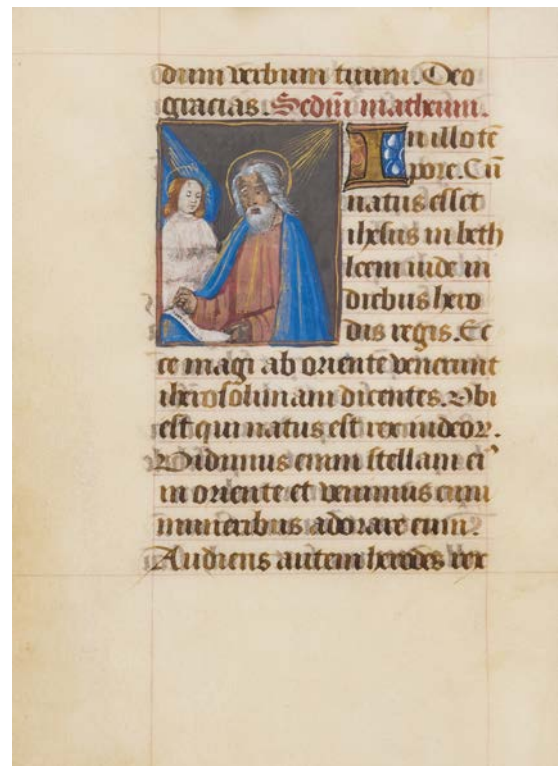 dum verbum tuum. Deo
gracias. Scdm̄ matheum.
In illo tē
pore. Cū
natus esset
ihesus in beth
leem iude in
diebus hero
dis regis. Ec
ce magi ab oriente venerunt
iherosolimam dicentes. Vbi
est qui natus est rex iudeoꝝ.
Vidimus enim stellam ei᷒
in oriente et venimus cum
muneribus adorare eum.
Audiens autem herodes rex